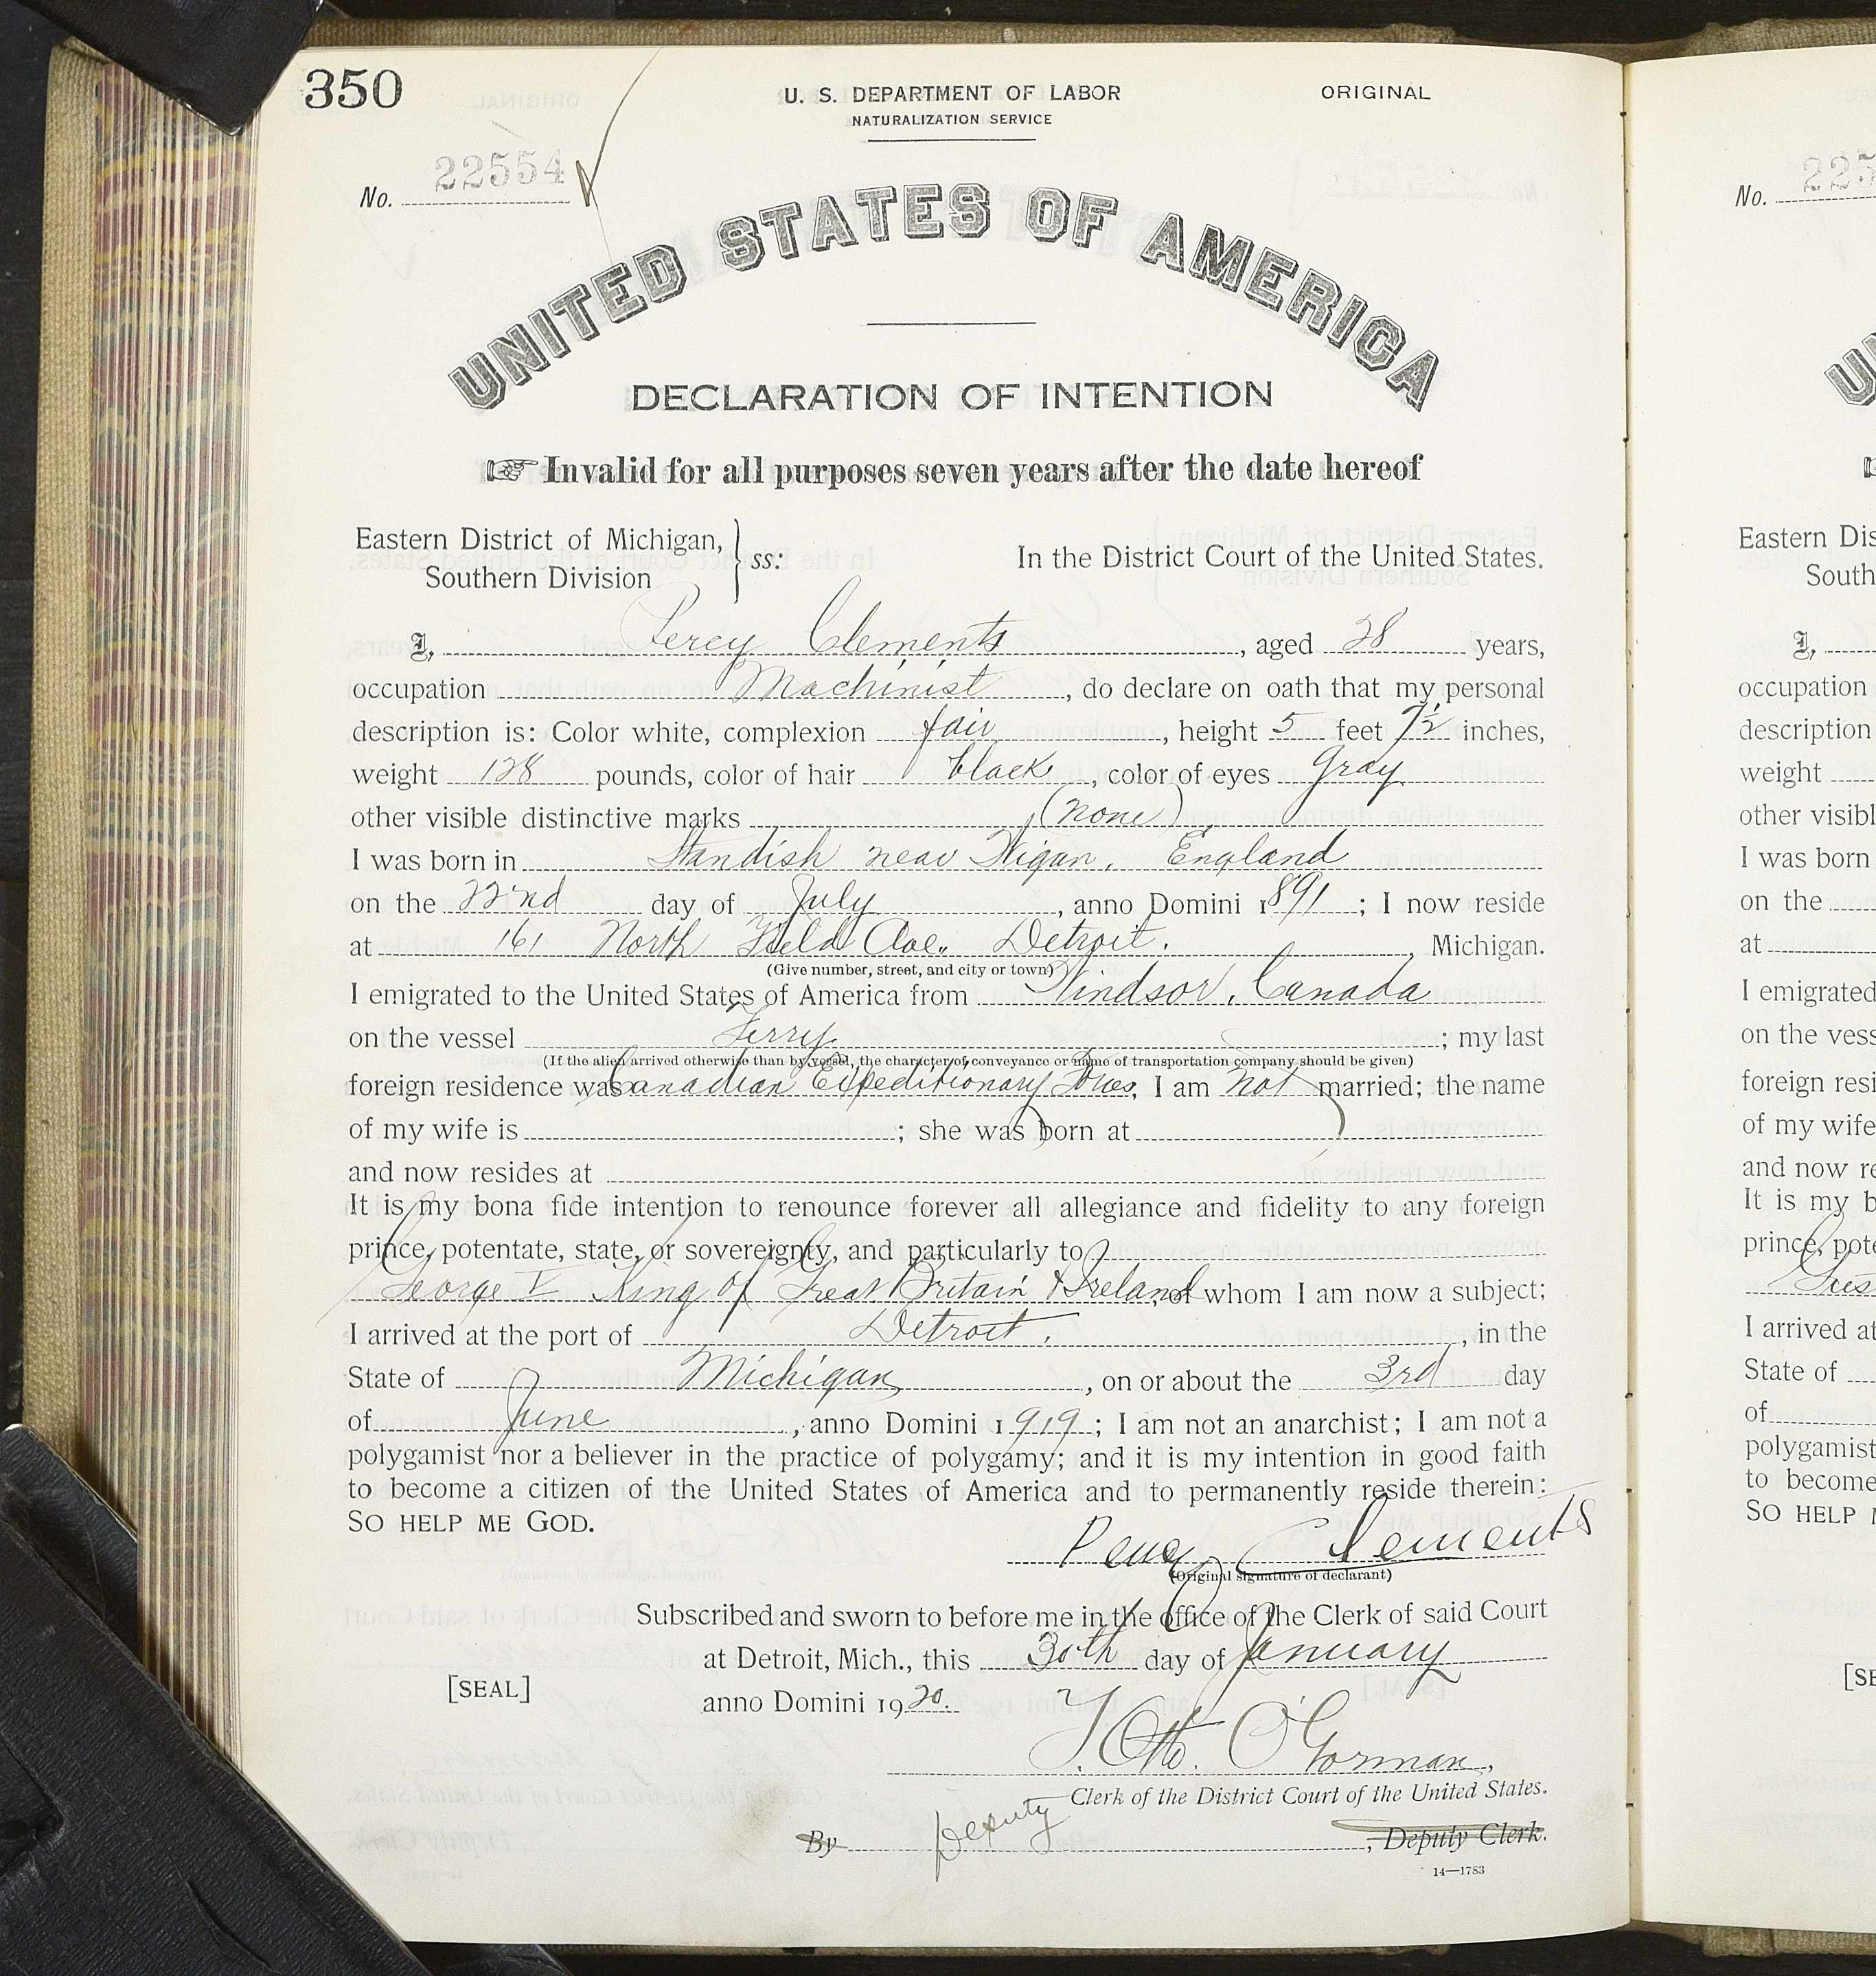 350
U. S. DEPARTMENT OF LABOR
ORIGINAL
NATURALIZATION SERVICE
No. 22554
UNITED STATES OF AMERICA
DECLARATION OF INTENTION
☞ Invalid for all purposes seven years after the date hereof
Eastern District of Michigan, } ss: In the District Court of the United States.
Southern Division
I, Percy Clements, aged 28 years,
occupation Machinist, do declare on oath that my personal
description is: Color white, complexion fair, height 5 feet 7½ inches,
weight 128 pounds, color of hair black, color of eyes Gray
other visible distinctive marks (none)
I was born in Standish near Wigan, England
on the 22nd day of July, anno Domini 1891; I now reside
at 161 North Field Ave., Detroit., Michigan.
(Give number, street, and city or town)
I emigrated to the United States of America from Windsor, Canada
on the vessel Ferry; my last
(If the alien arrived otherwise than by vessel, the character of conveyance or name of transportation company should be given)
foreign residence was Canadian Expeditionary; I am not married; the name
of my wife is ; she was born at
and now resides at
It is my bona fide intention to renounce forever all allegiance and fidelity to any foreign
prince, potentate, state, or sovereignty, and particularly to
George V King of Great Britain & Ireland, of whom I am now a subject;
I arrived at the port of Detroit., in the
State of Michigan, on or about the 3rd day
of June, anno Domini 1919; I am not an anarchist; I am not a
polygamist nor a believer in the practice of polygamy; and it is my intention in good faith
to become a citizen of the United States of America and to permanently reside therein:
SO HELP ME GOD.
Percy Clements
(Original signature of declarant)
Subscribed and sworn to before me in the office of the Clerk of said Court
at Detroit, Mich., this 30th day of January
[SEAL]
anno Domini 1920.
O'Gorman,
Clerk of the District Court of the United States.
Deputy
By , Deputy Clerk.
14—1783
No. 225
Eastern Dis
South
I,
occupation
description
weight
other visibl
I was born
on the
at
I emigrated
on the vess
foreign resi
of my wife
and now re
It is my b
prince, pote
I arrived at
State of
of
polygamist
to become
SO HELP M
[SE